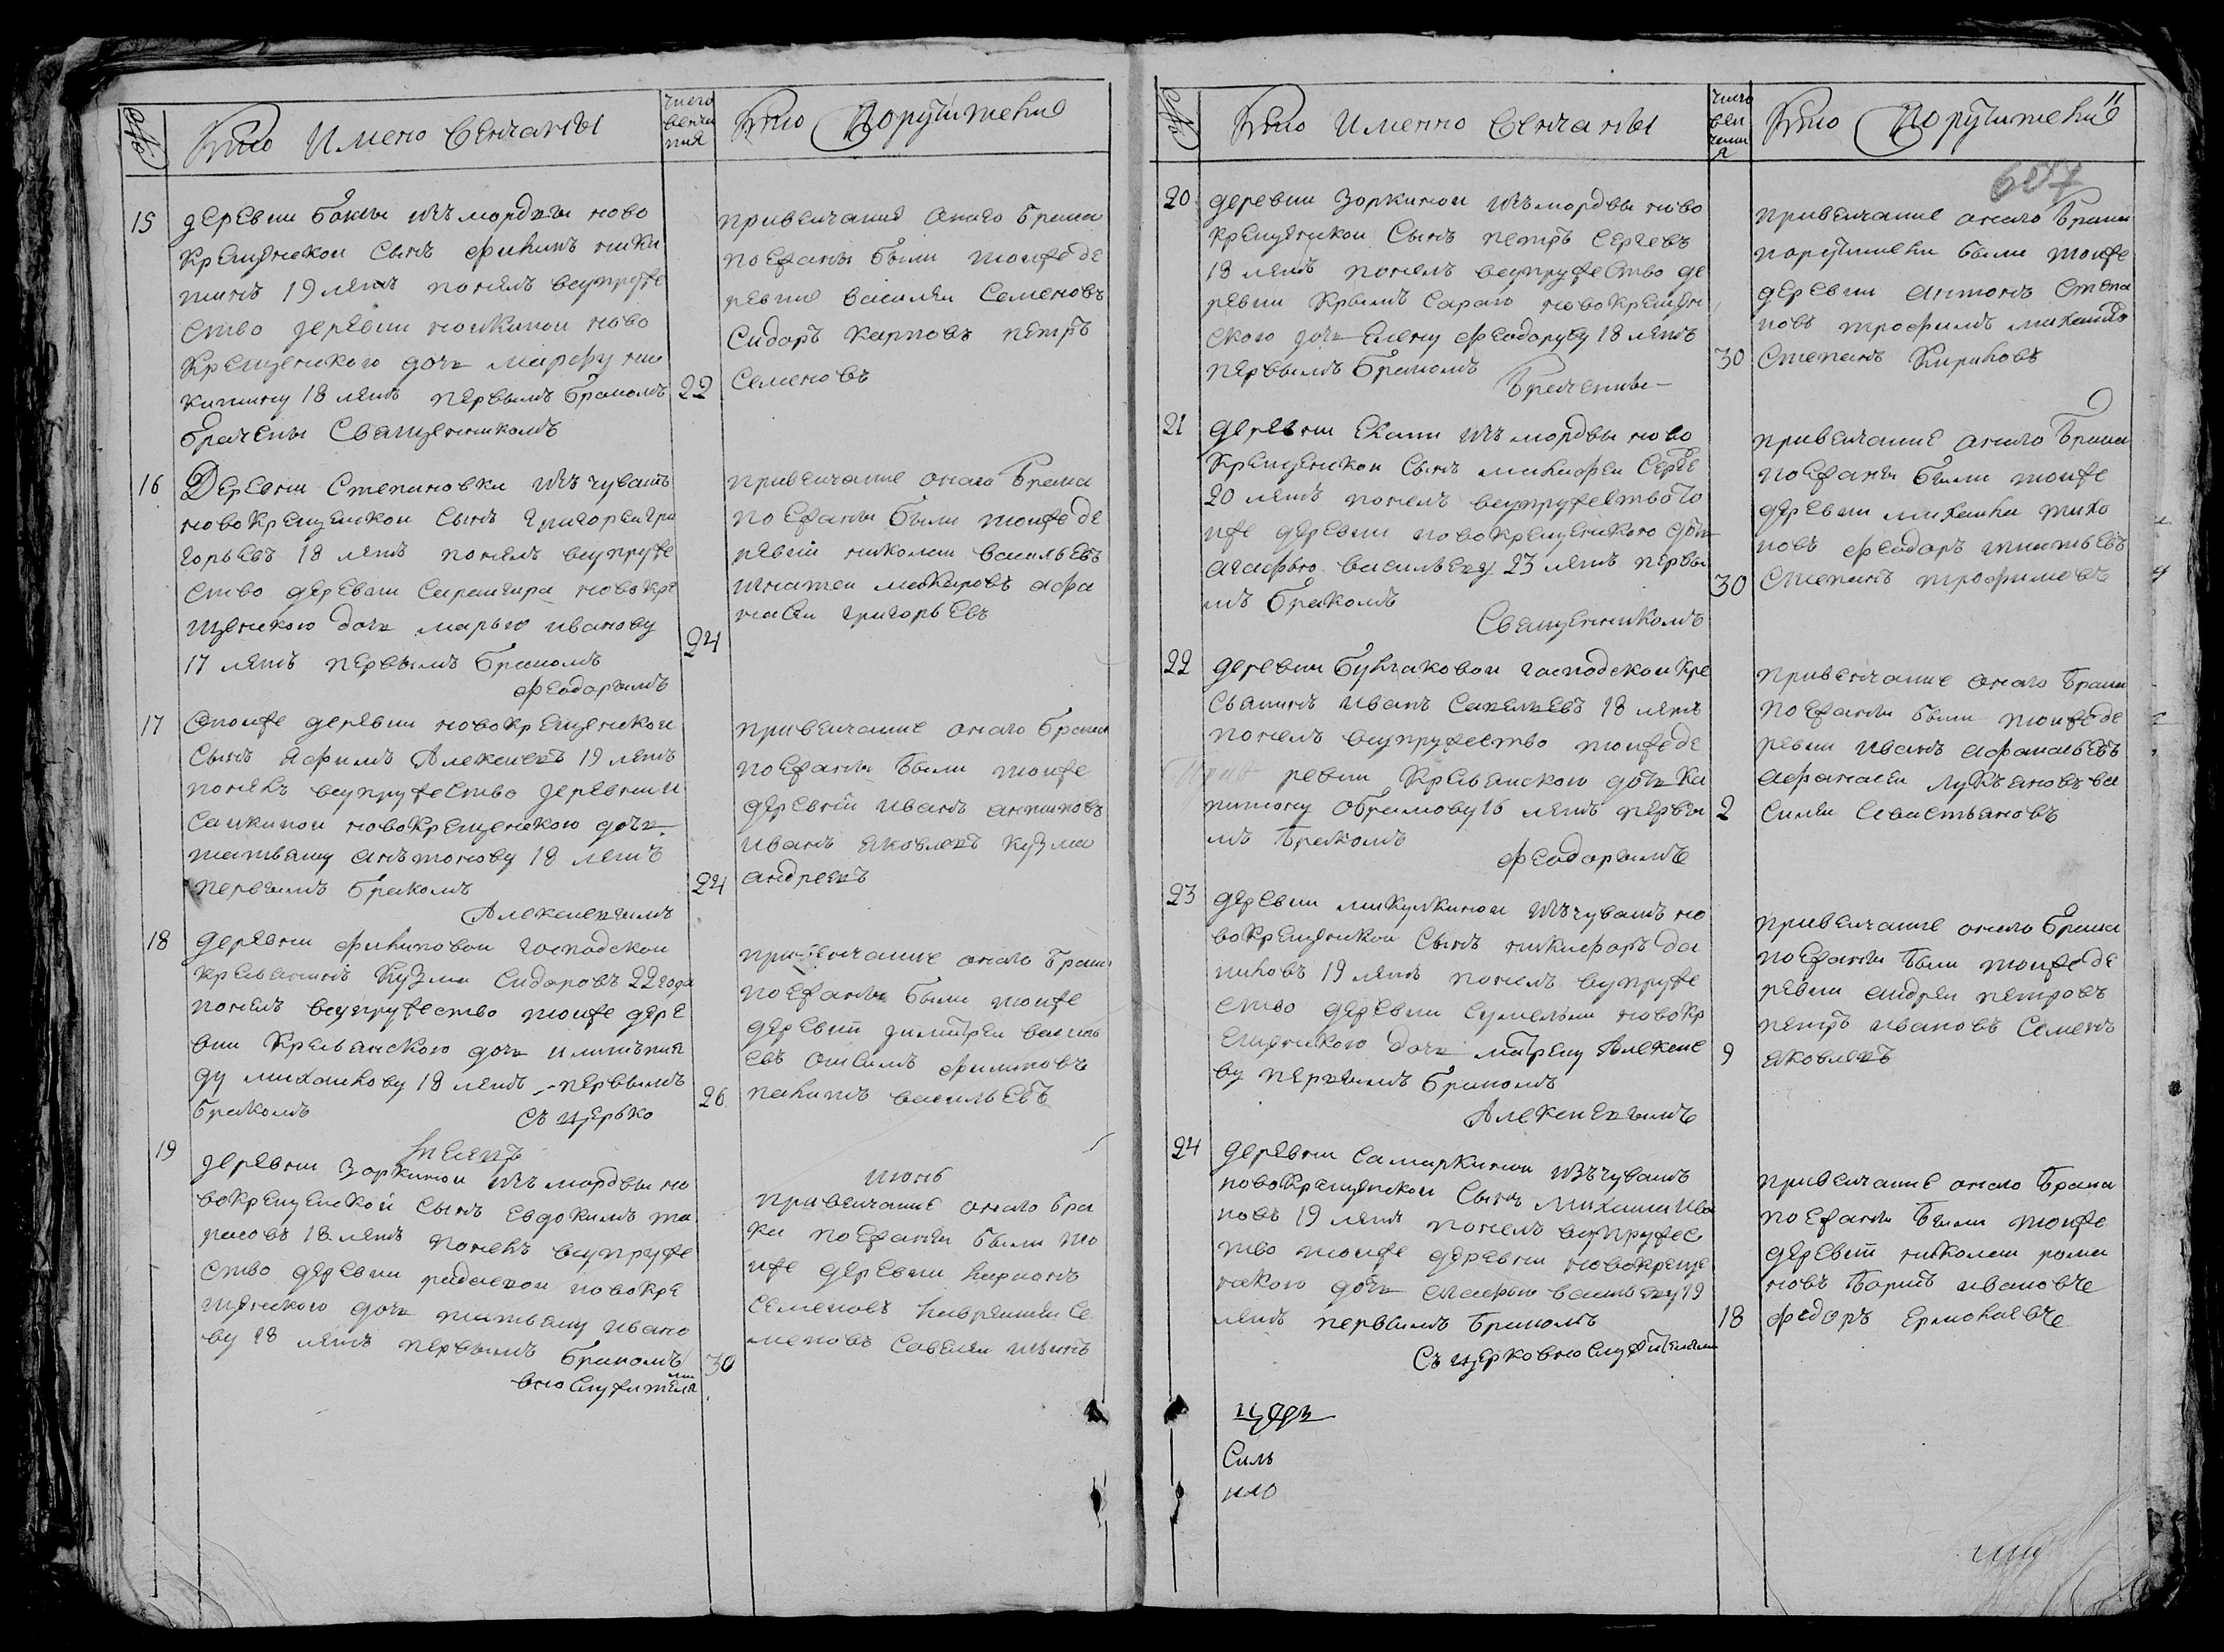 №
Кто Имено венчаны
число
венча
ния
Кто Поручители
15
деревни бакли изъ мордвы ново
крещенской сынъ филипъ ники
тинъ 19 летъ понелъ всупруже
ство деревни ноикиной ново
крещенского дочь марфу ни
китину 18 летъ первымъ бракомъ
22
брачены Священникомъ
привенчание онаго брака
поезжаны были тоижъ де
ревни василеи Семеновъ
Сидоръ карповъ петръ
Семеновъ
16
Деревни Степановки изъ чувашъ
новокрещенской сынъ григореи гри
горьевъ 18 летъ понелъ всупруже
ство деревни новокре
щенского дочь марью иванову
17 летъ первымъ бракомъ
24
феодорымъ
привенчание онаго брака
поезжаны были тоиже де
ревни николаи васильевъ
игнатеи макаровъ афа
насеи григорьевъ
17
Этоиже деревни новокрещенской
сынъ Ефимъ Алексеевъ 19 летъ
понелъ всупружество деревни
саикиной новокрещенского дочь
татьяну антонову 18 летъ
первымъ бракомъ
24
Алексеевымъ
привенчание онаго брака
поезжаны были тоиже
деревни иванъ антиповъ
иванъ яковлевъ кузма
андреевъ
18
деревни филиповой господской
кресьянинъ Кузма Сидаровъ 22 года
понелъ всупружество тоиже дере
вни кресьянского дочь
ду михаилову 18 летъ первымъ
бракомъ
26
съ церько
привенчание онаго брака
поезжаны были тоиже
деревни димитреи василь
евъ филиповъ
васильевъ
19
деревни Зоркиной изъ мордвы но
вокрещенской сынъ Евдокимъ та
расовъ 18 летъ понелъ всупруже
ство деревни радаевой новокре
щенского дочь татьяну ивано
ву 18 летъ первымъ бракомъ
30
вно служителя
ми
июнь
привенчание онаго бра
ка поезжаны были то
иже деревни ларионъ
Семеновъ лаврентеи Се
меновъ Савелеи
№
Кто именно венчаны
число
вен
чани
я
Кто Поручители
11
607
20
деревни Зоркиной изъ мордвы ново
крещенской сынъ петръ Сергеевъ
18 летъ понелъ всупружество де
ревни Крымъ Сараю новокрещен
ского дочь Елену феодорову 18 летъ
первымъ бракомъ
30
брачены
привенчание онаго брака
поручители были тоиже
деревни антонъ степа
новъ трофимъ михаило
Степанъ Кириловъ
21
деревни изъ мордвы ново
крещенской сынъ Серге
20 летъ понелъ всупружество то
иже деревни новокрещенского дочь
агафью васильеву 23 летъ первы
мъ бракомъ
30
Священникомъ
привенчание онаго брака
поезжаны были тоиже
деревни михаила тихо
новъ феодоръ игнатьевъ
Степанъ трофимовъ
22
деревни булгаковой господской кре
сьянинъ иванъ Савельевъ 18 летъ
понелъ всупружество тоиже де
ревни кресьянского дочь ка
питону обрамову 16 летъ первы
мъ бракомъ
2
феодорымъ
привенчание онаго брака
поезжаны были тоиже де
ревни иванъ афанасьевъ
афанасеи лукьяновъ ва
силеи Севастьяновъ
23
деревни микулкиной изъ чувашъ но
вокрещенской сынъ никифоръ да
ниловъ 19 летъ понелъ всупруже
ство деревни новокр
ещенского дочь матрену Алексее
ву первымъ бракомъ
9
Алексеевымъ
привенчание онаго брака
поезжаны были тоиже де
ревни андреи петровъ
петръ ивановъ Семенъ
яковлевъ
24
деревни самаркиной изъ чувашъ
новокрещенской сынъ михаила ива
новъ 19 летъ понелъ всупружес
тво тоиже деревни новокреще
нского дочь агафью васильеву 19
летъ первымъ бракомъ
18
Съ церковно служителями
привенчание онаго брака
поезжаны были тоиже
деревни николаи рома
новъ борисъ ивановъ
федоръ ермолаевъ
Силь